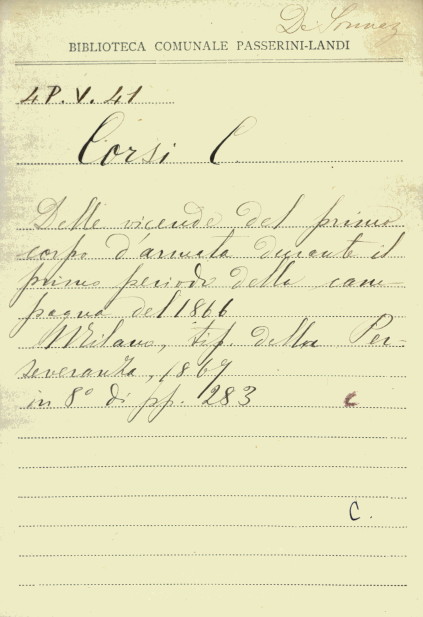 De
BIBLIOTECA COMUNALE PASSERINI-LANDI
4 P. V. 41
Corsi C.
Delle vicende del primo
corpo d'armata durante il
primo periodo della cam-
pagna del 1866
Milano, tip. della Per-
severanza, 1867
in 8° di pp. 283 C
C.